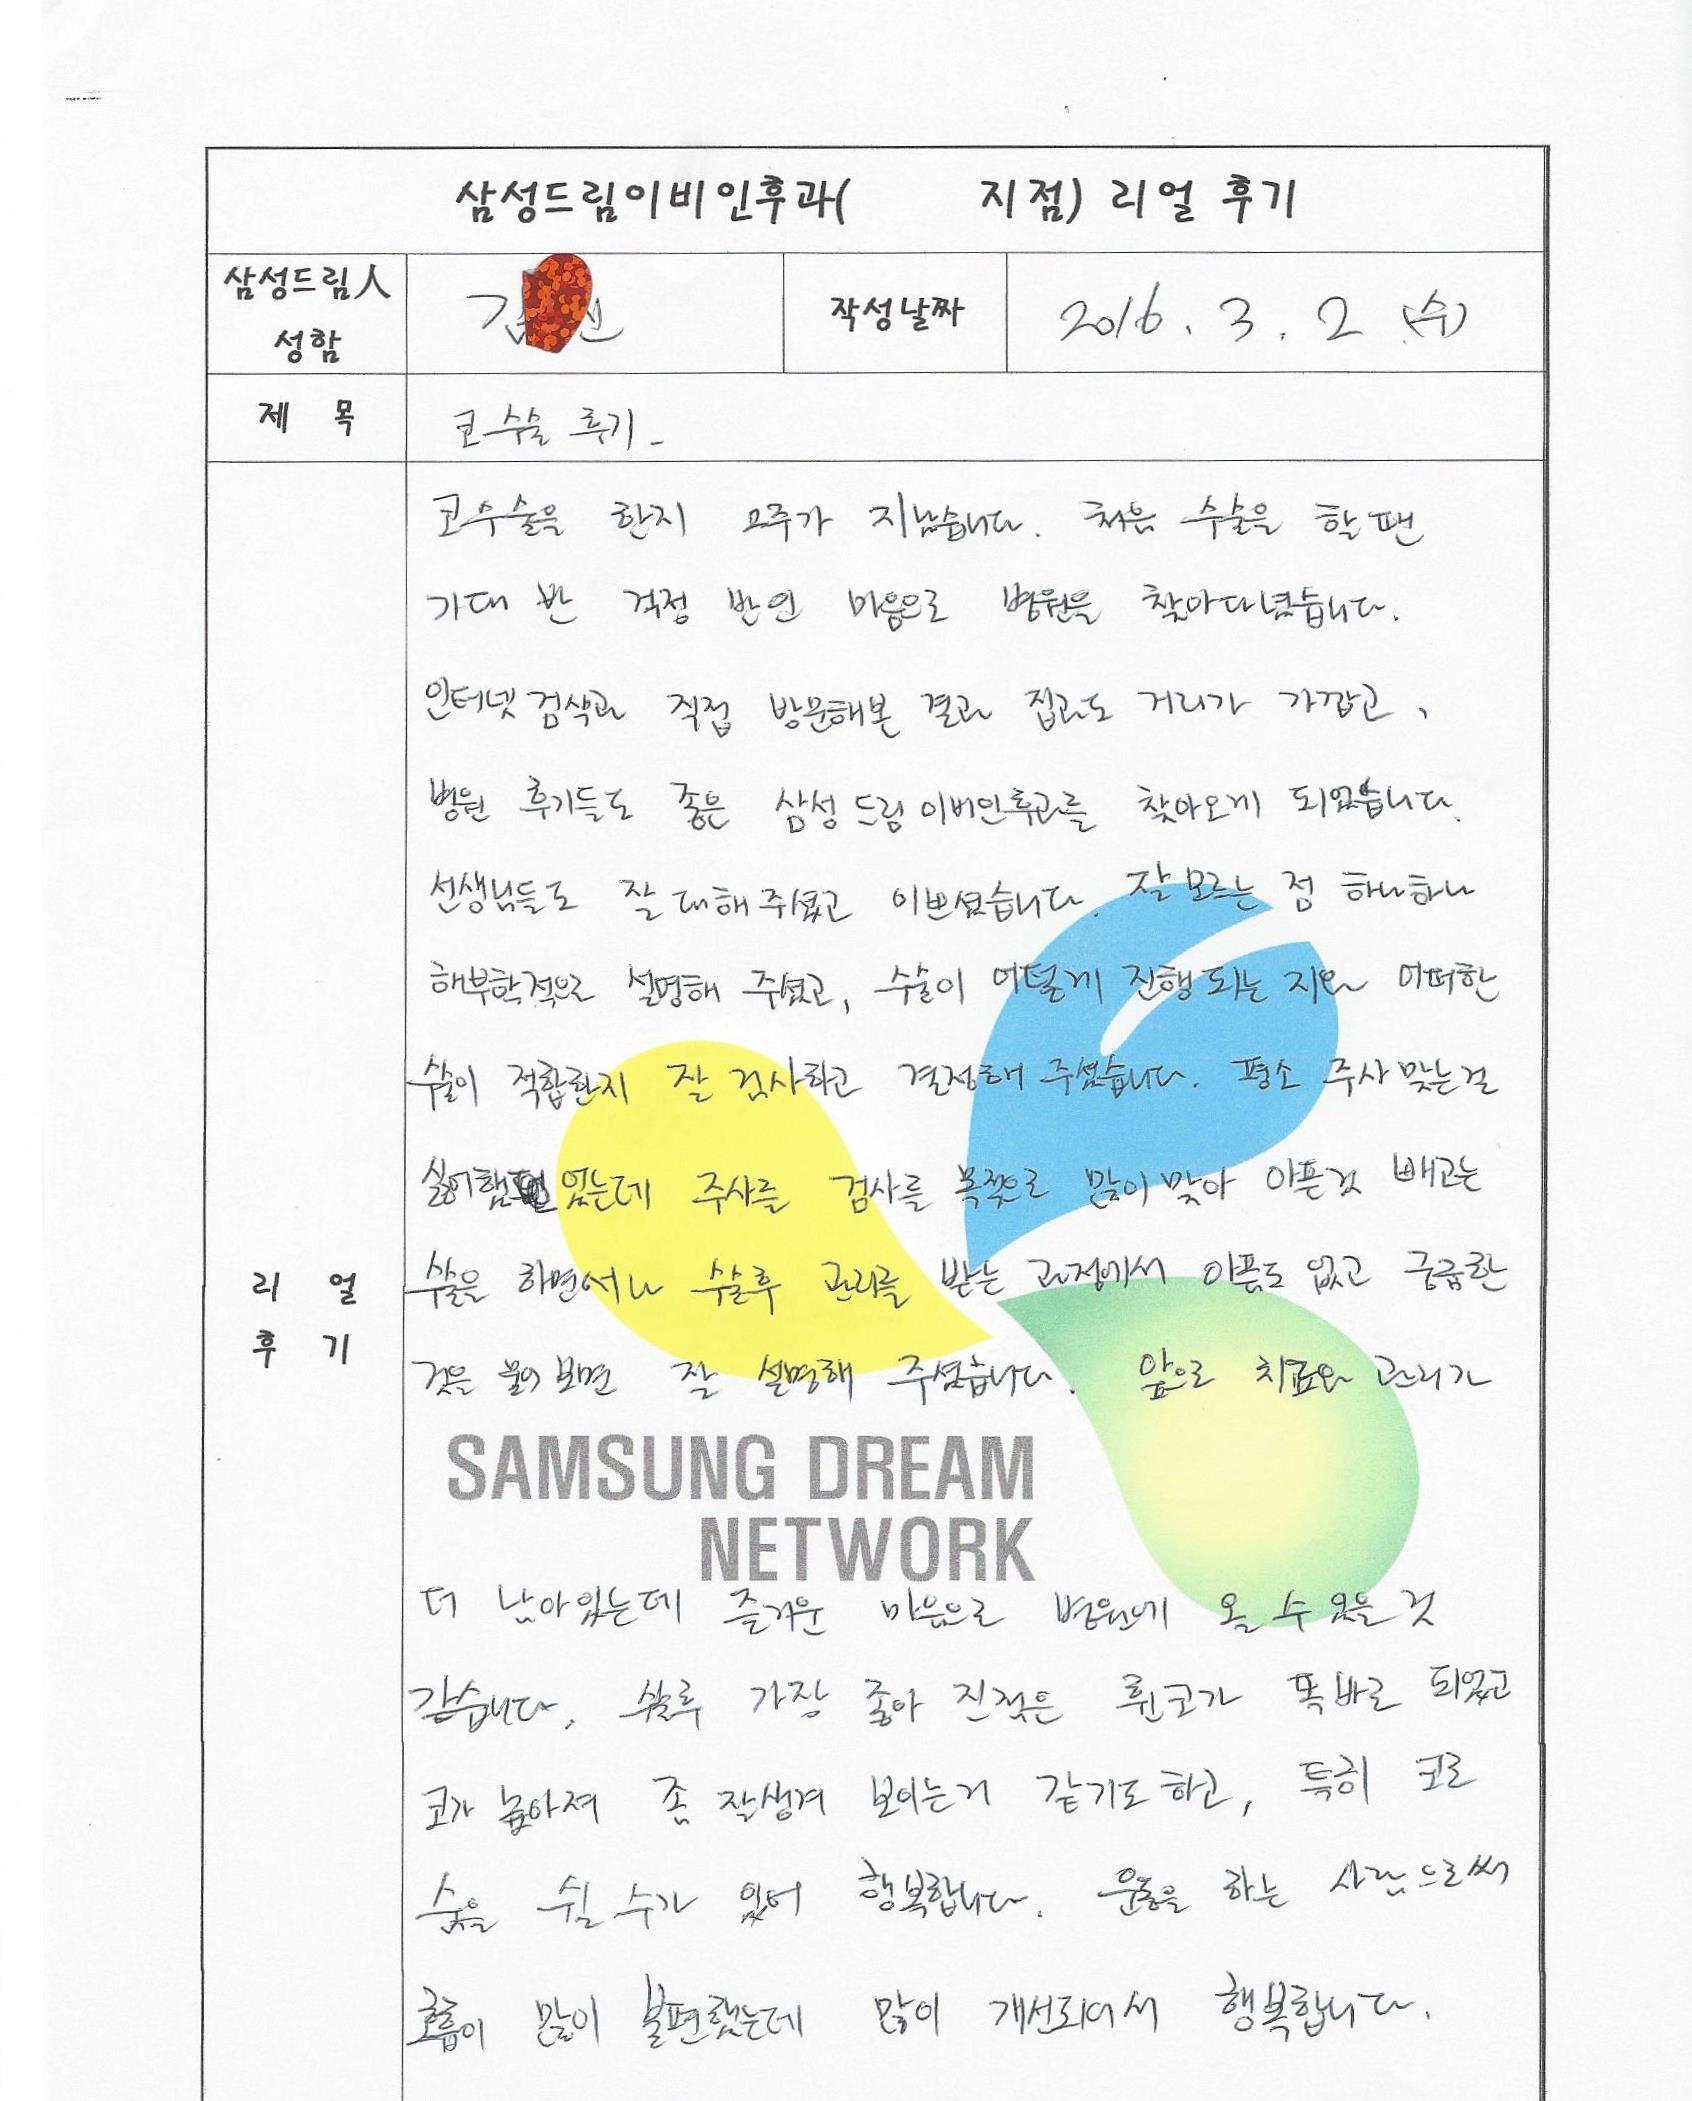 삼성드림이비인후과( 지점) 리얼 후기
삼성드림人
성함
김
작성날짜
2016. 3. 2 (수)
제 목
코수술 후기.
코수술을 한지 2주가 지났습니다. 처음 수술을 할 땐
기대 반 걱정 반인 마음으로 병원을 찾아다녔습니다.
인터넷 검색과 직접 방문해본 결과 집과도 거리가 가깝고,
병원 후기들도 좋은 삼성드림이비인후과를 찾아오게 되었습니다.
선생님들도 잘 대해주셨고 이쁘셨습니다. 잘 모르는 점 하나하나
해부학적으로 설명해 주셨고, 수술이 어떻게 진행되는 지와 어떠한
수술이 적합한지 잘 검사하고 결정해 주셨습니다. 평소 주사 맞는걸
싫어함 있는데 주사를 검사를 목적으로 많이 맞아 아픈것 빼고는
수술을 하면서나 수술후 관리를 받는 과정에서 아픔도 없고 궁금한
것을 물어 보면 잘 설명해 주셨습니다. 앞으로 치료와 관리가
SAMSUNG DREAM
NETWORK
더 남아있는데 즐거운 마음으로 병원에 올 수 있을 것
같습니다. 수술후 가장 좋아 진점은 휜코가 똑바로 되었고
코가 높아져 좀 잘생겨 보이는거 같기도 하고, 특히 코로
숨을 쉴 수가 있어 행복합니다. 운동을 하는 사람으로써
호흡이 많이 불편했는데 많이 개선되어서 행복합니다.
리 얼
후 기